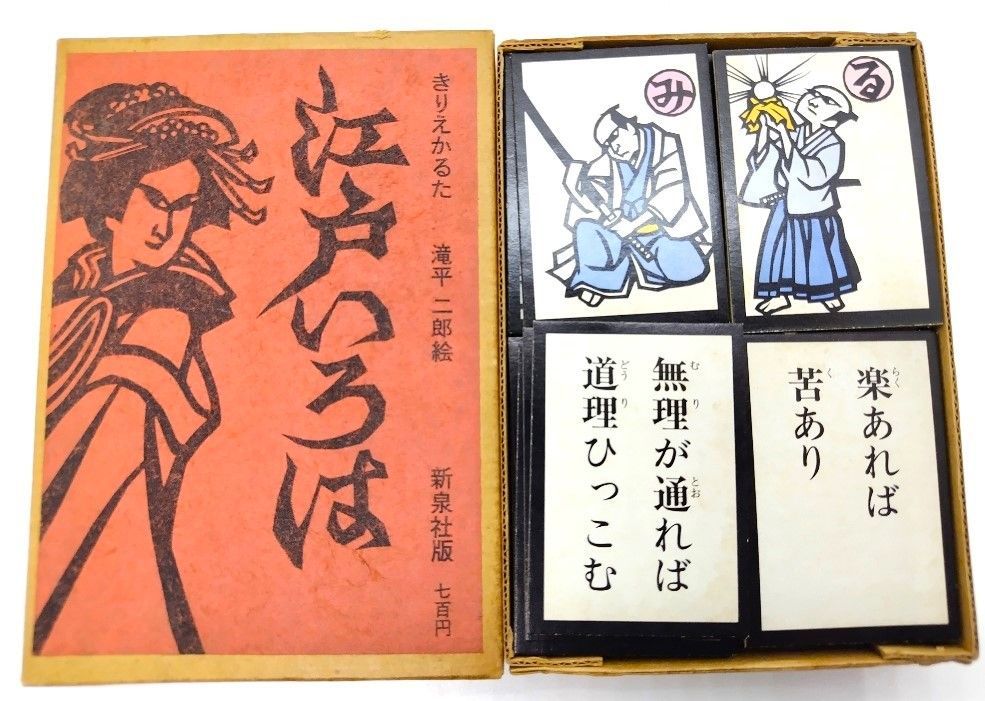 きりえかるた 滝平二郎絵 新泉社版 七百円
江戸いろは
み
る
無理が通れば
道理ひっこむ
楽あれば
苦あり